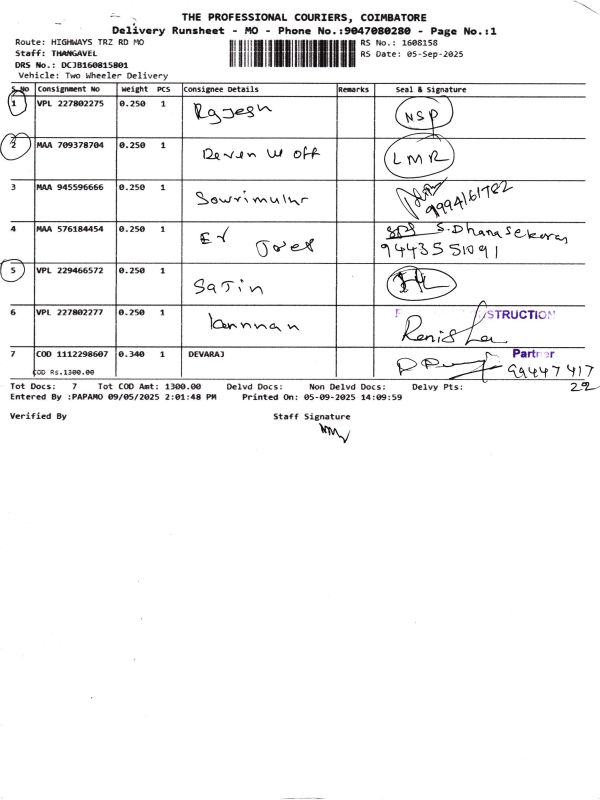 THE PROFESSIONAL COURIERS, COIMBATORE
Delivery Runsheet - MO - Phone No.:9047080280 - Page No.:1
Route: HIGHWAYS TRZ RD MO RS No.: 1608158
Staff: THANGAVEL RS Date: 05-Sep-2025
DRS No.: DCJB160815801
Vehicle: Two Wheeler Delivery
S.No Consignment No Weight PCS Consignee Details Remarks Seal & Signature
1 VPL 227802275 0.250 1 Rajesh NSP
2 MAA 709378704 0.250 1 Deven W off LMR
3 MAA 945596666 0.250 1 9994161782
4 MAA 576184454 0.250 1 Er S. Dhanasekaran
9443551091
5 VPL 229466572 0.250 1 Satin
6 VPL 227802277 0.250 1 kannan STRUCTION
7 COD 1112298607 0.340 1 DEVARAJ Partner
COD Rs.1300.00 99447 417
22
Tot Docs: 7 Tot COD Amt: 1300.00 Delvd Docs: Non Delvd Docs: Delvy Pts:
Entered By :PAPAMO 09/05/2025 2:01:48 PM Printed On: 05-09-2025 14:09:59
Verified By Staff Signature